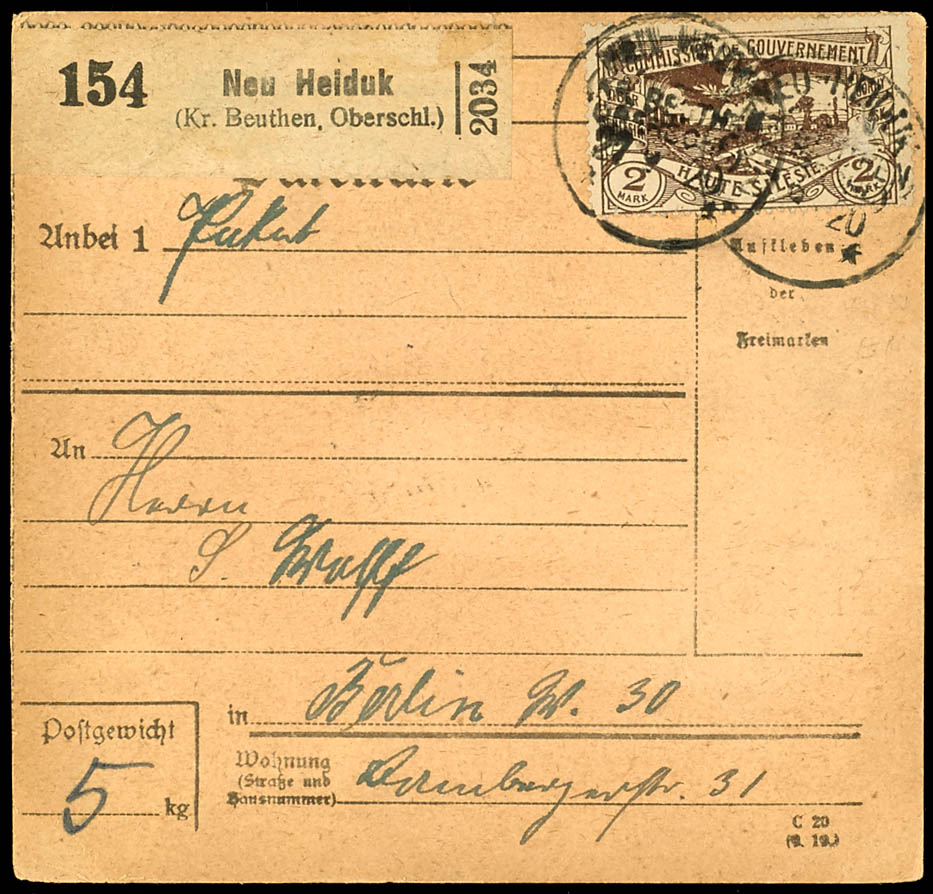 154
Neu Heiduk
(Kr. Beuthen, Oberschl.)
2034
COMMISSION DE GOUVERNEMENT
HAUTE SILESIE
2 MARK
2 MARK
NEU-HEIDUK
20
Anbei 1 Paket
Aufkleben
der
Freimarken
An Herrn
S. Wolff
in Berlin W. 30
Postgewicht
5 kg
Wohnung
(Straße und
Hausnummer)
Bambergerstr. 31
C 20
(9. 19.)